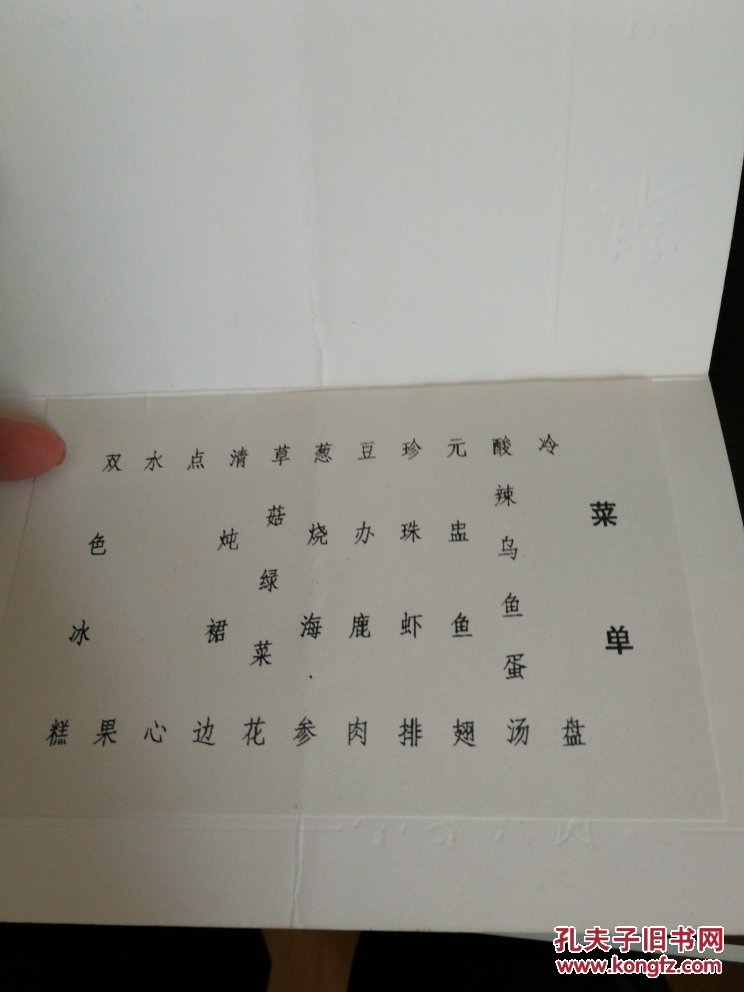 菜单
冷盘
酸辣乌鱼蛋汤
元盅鱼翅
珍珠虾排
豆办鹿肉
葱烧海参
草菇绿菜花
清炖裙边
点心
水果
双色冰糕
孔夫子旧书网
www.kongfz.com